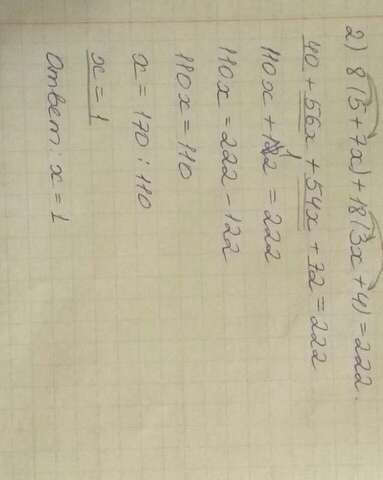 2) 8(5+7x)+18(3x+4)=222.
40+56x+54x+72=222
110x+112=222
110x=222-122
110x=110
x=170:110
x=1
Ответ: x=1